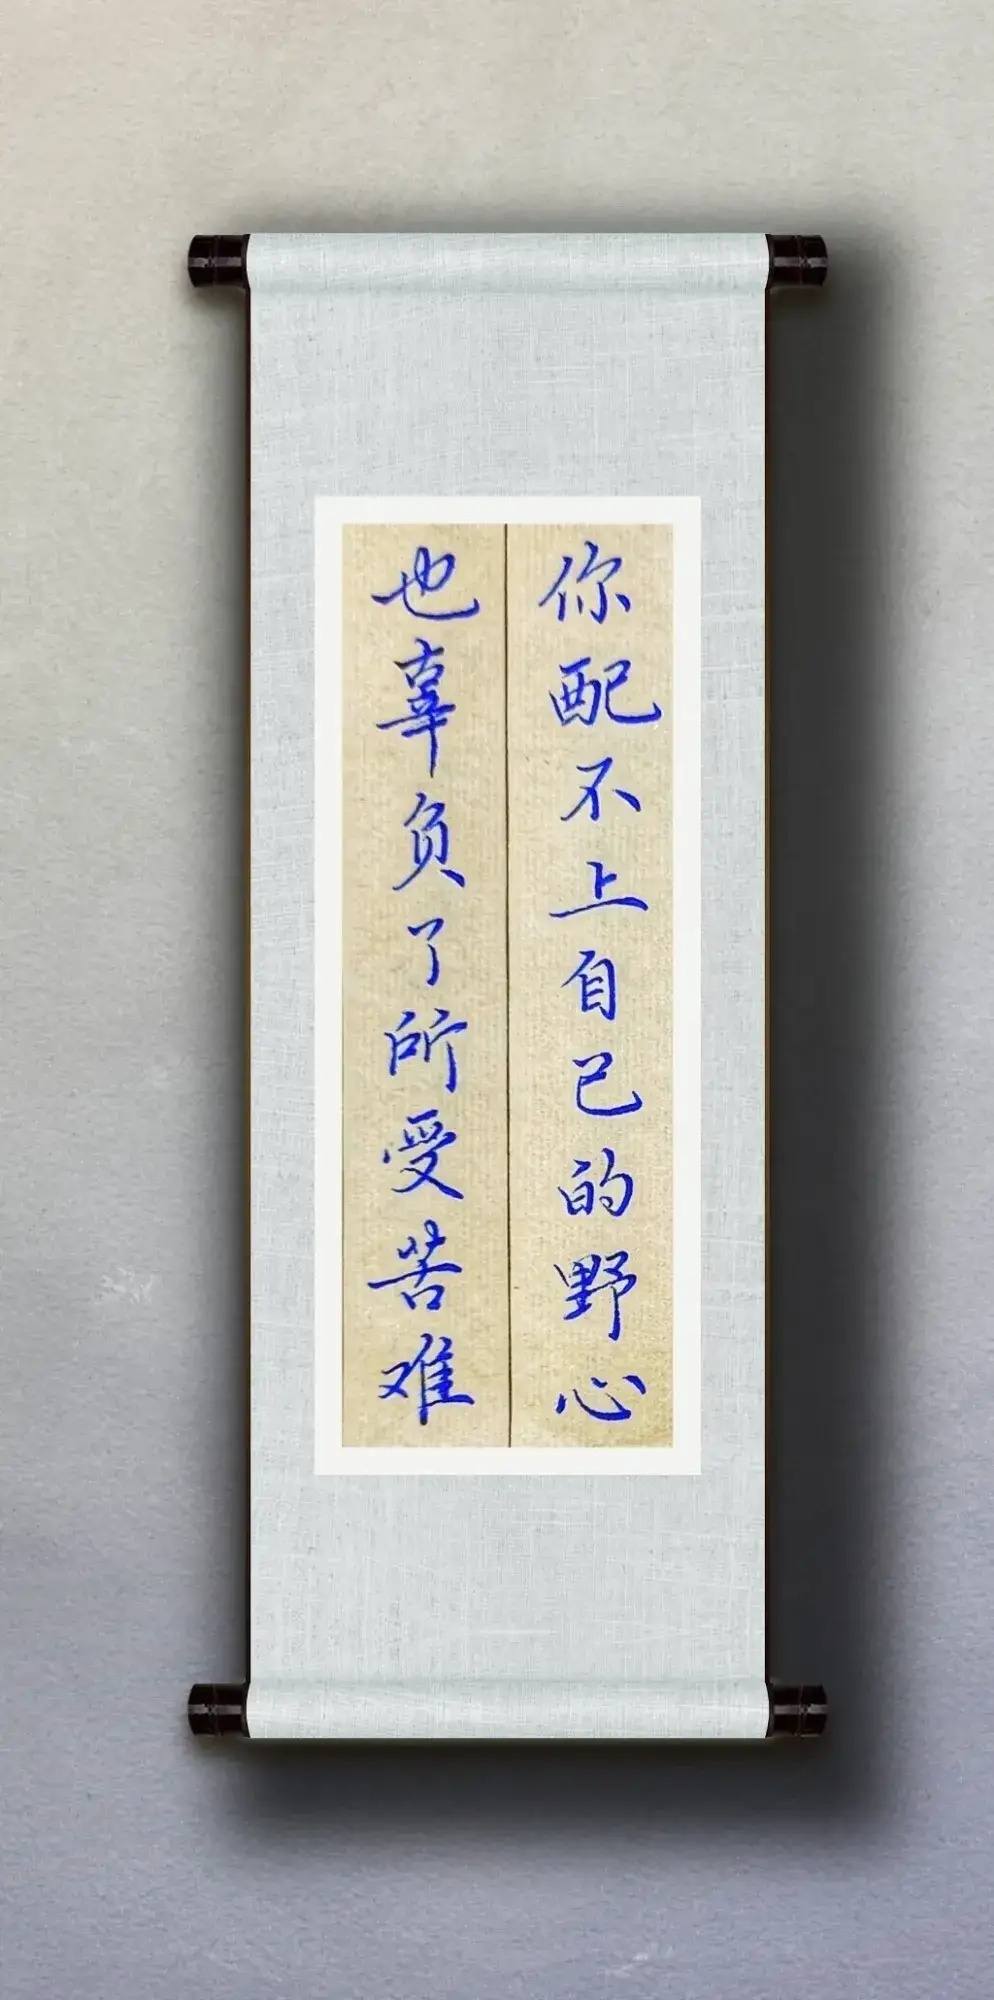 你配不上自己的野心
也辜负了所受苦难